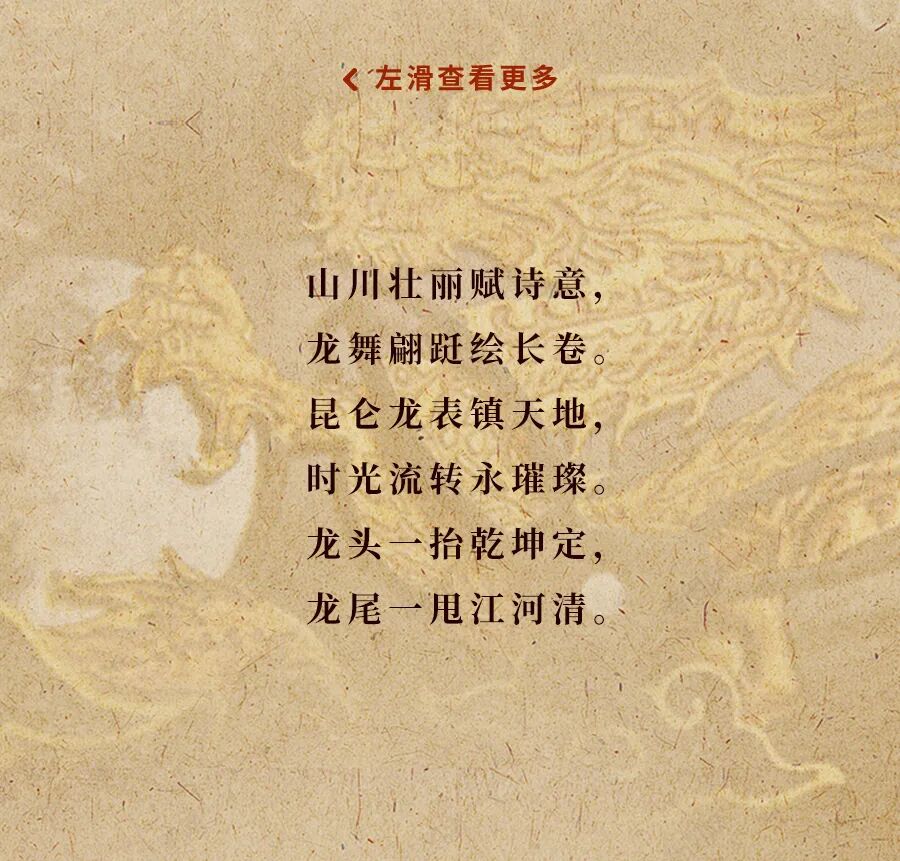 左滑查看更多
山川壮丽赋诗意，
龙舞翩跹绘长卷。
昆仑龙表镇天地，
时光流转永璀璨。
龙头一抬乾坤定，
龙尾一甩江河清。